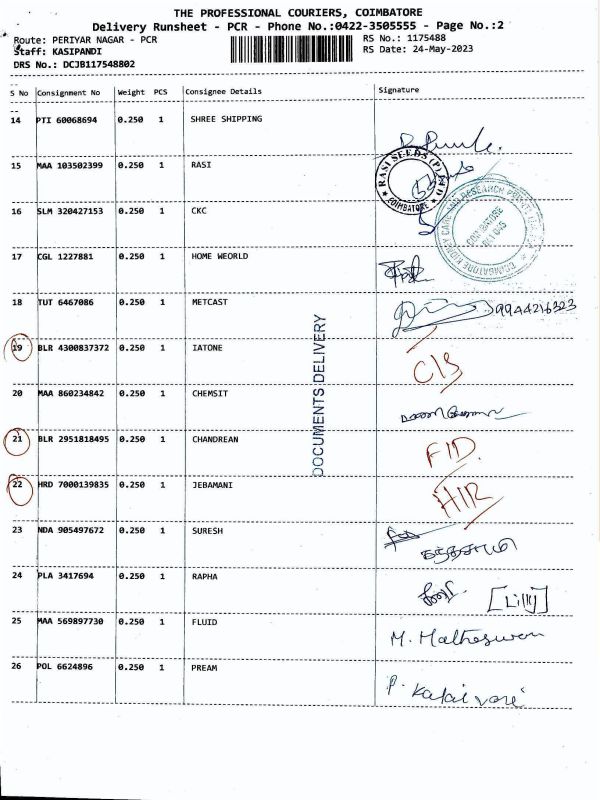 THE PROFESSIONAL COURIERS, COIMBATORE
Delivery Runsheet - PCR - Phone No.:0422-3505555 - Page No.:2
Route: PERIYAR NAGAR - PCR
RS No.: 1175488
Staff: KASIPANDI
RS Date: 24-May-2023
DRS No.: DCJB117548802
S No Consignment No Weight PCS Consignee Details Signature
14 PTI 60068694 0.250 1 SHREE SHIPPING
15 MAA 103502399 0.250 1 RASI
RASI SEEDS (P) LTD
COIMBATORE
16 SLM 320427153 0.250 1 CKC
COIMBATORE KIDNEY CARE AND RESEARCH PRIVATE
COIMBATORE
17 CGL 1227881 0.250 1 HOME WEORLD
18 TUT 6467086 0.250 1 METCAST 9944216323
DOCUMENTS DELIVERY
19 BLR 4300837372 0.250 1 IATONE
20 MAA 860234842 0.250 1 CHEMSIT
21 BLR 2951818495 0.250 1 CHANDREAN
22 HRD 7000139835 0.250 1 JEBAMANI
23 NDA 905497672 0.250 1 SURESH
24 PLA 3417694 0.250 1 RAPHA [Lilly]
25 MAA 569897730 0.250 1 FLUID M. Matheswan
26 POL 6624896 0.250 1 PREAM P. Kalaivani